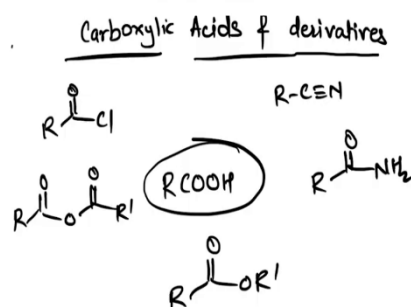 Carboxylic Acids & derivatives
O
R Cl
R-C≡N
O O
R O R'
RCOOH
O
R NH₂
O
R OR'